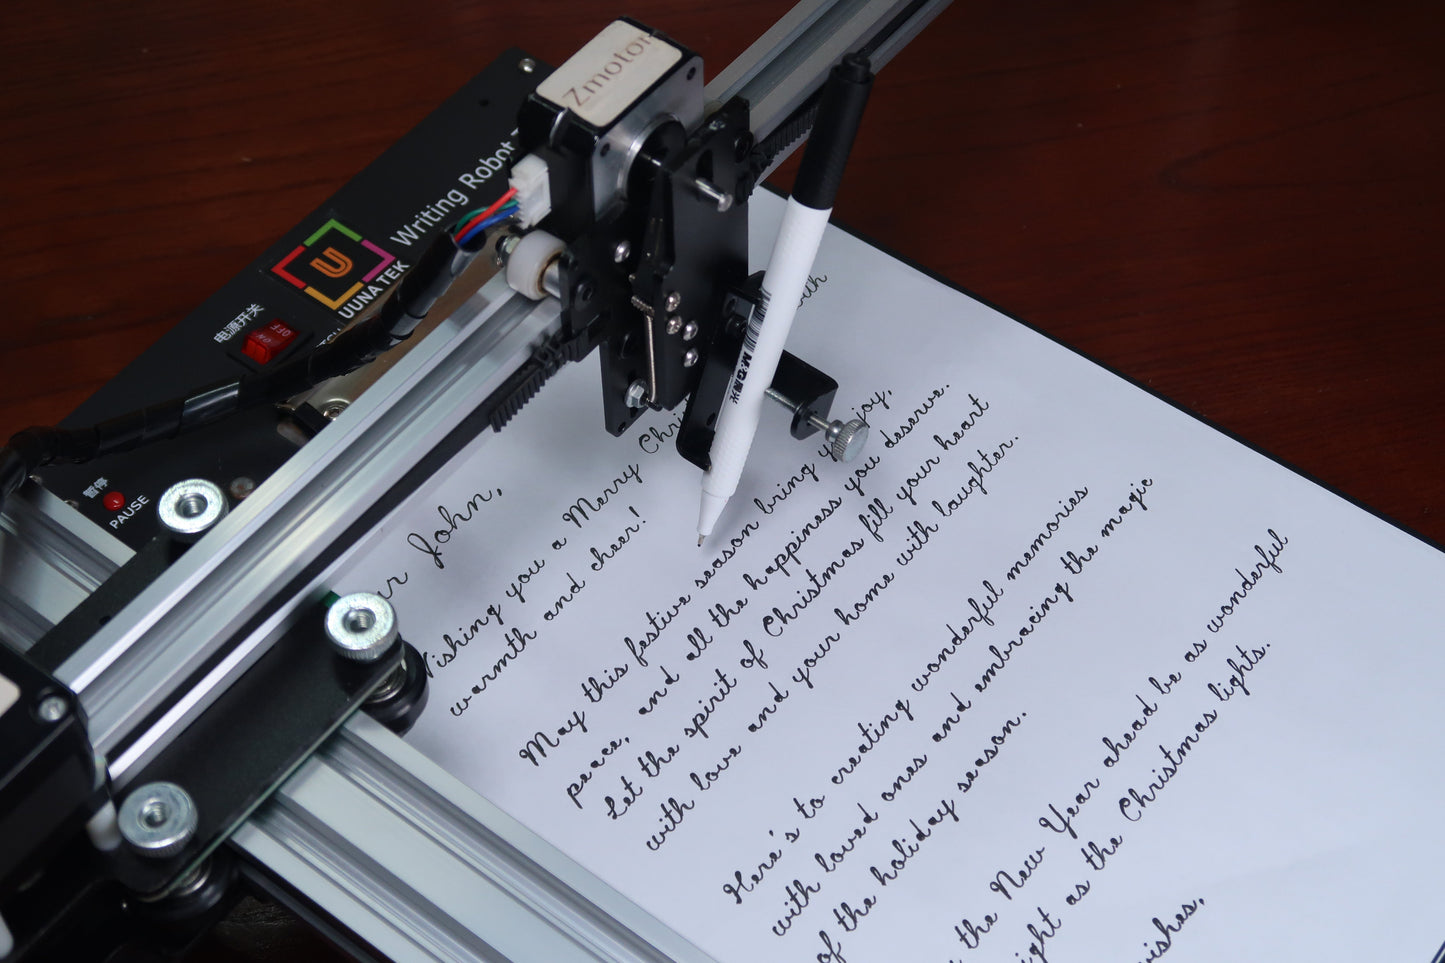 Zmotor
Writing Robot
UUNA TEK
电源开关
ON
OFF
暂停
PAUSE
M&G晨光
John,
Wishing you a Merry
warmth and cheer!
May this festive season bring joy,
peace, and all the happiness you deserve.
Let the spirit of Christmas fill your heart
with love and your home with laughter.
Here's to creating wonderful memories
with loved ones and embracing the magic
of the holiday season.
the New Year ahead be as wonderful
as the Christmas lights.